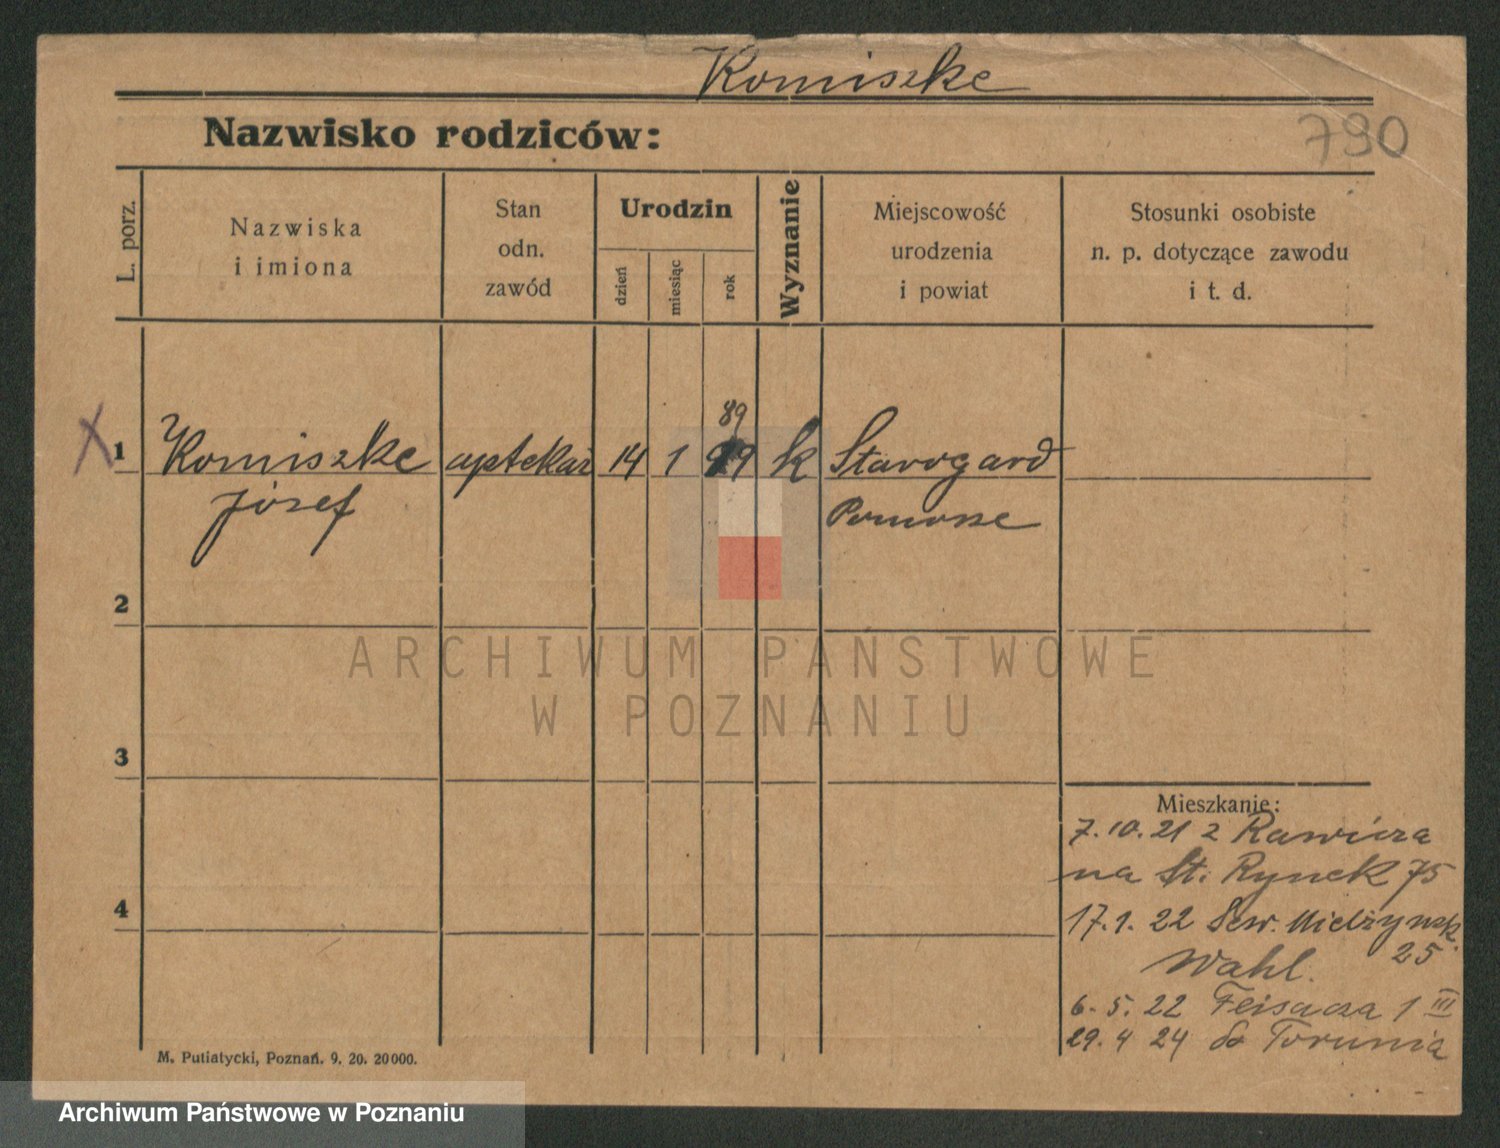 Komiszke
Nazwisko rodziców:
790
L. porz.
Nazwiska
i imiona
Stan
odn.
zawód
Urodzin
dzień
miesiąc
rok
Wyznanie
Miejscowość
urodzenia
i powiat
Stosunki osobiste
n. p. dotyczące zawodu
i t. d.
89
X 1 Komiszke aptekarz 14 1 k Starogard
Józef Pomorze
2
ARCHIWUM PAŃSTWOWE
W POZNANIU
3
Mieszkanie:
7. 10. 21 z Rawicza
na St. Rynek 75
4
17. 1. 22 Sew. Mielżyńsk.
25
Wahl.
6. 5. 22 1 III
29. 4 24 do Torunia
M. Putiatycki, Poznań. 9. 20. 20000.
Archiwum Państwowe w Poznaniu